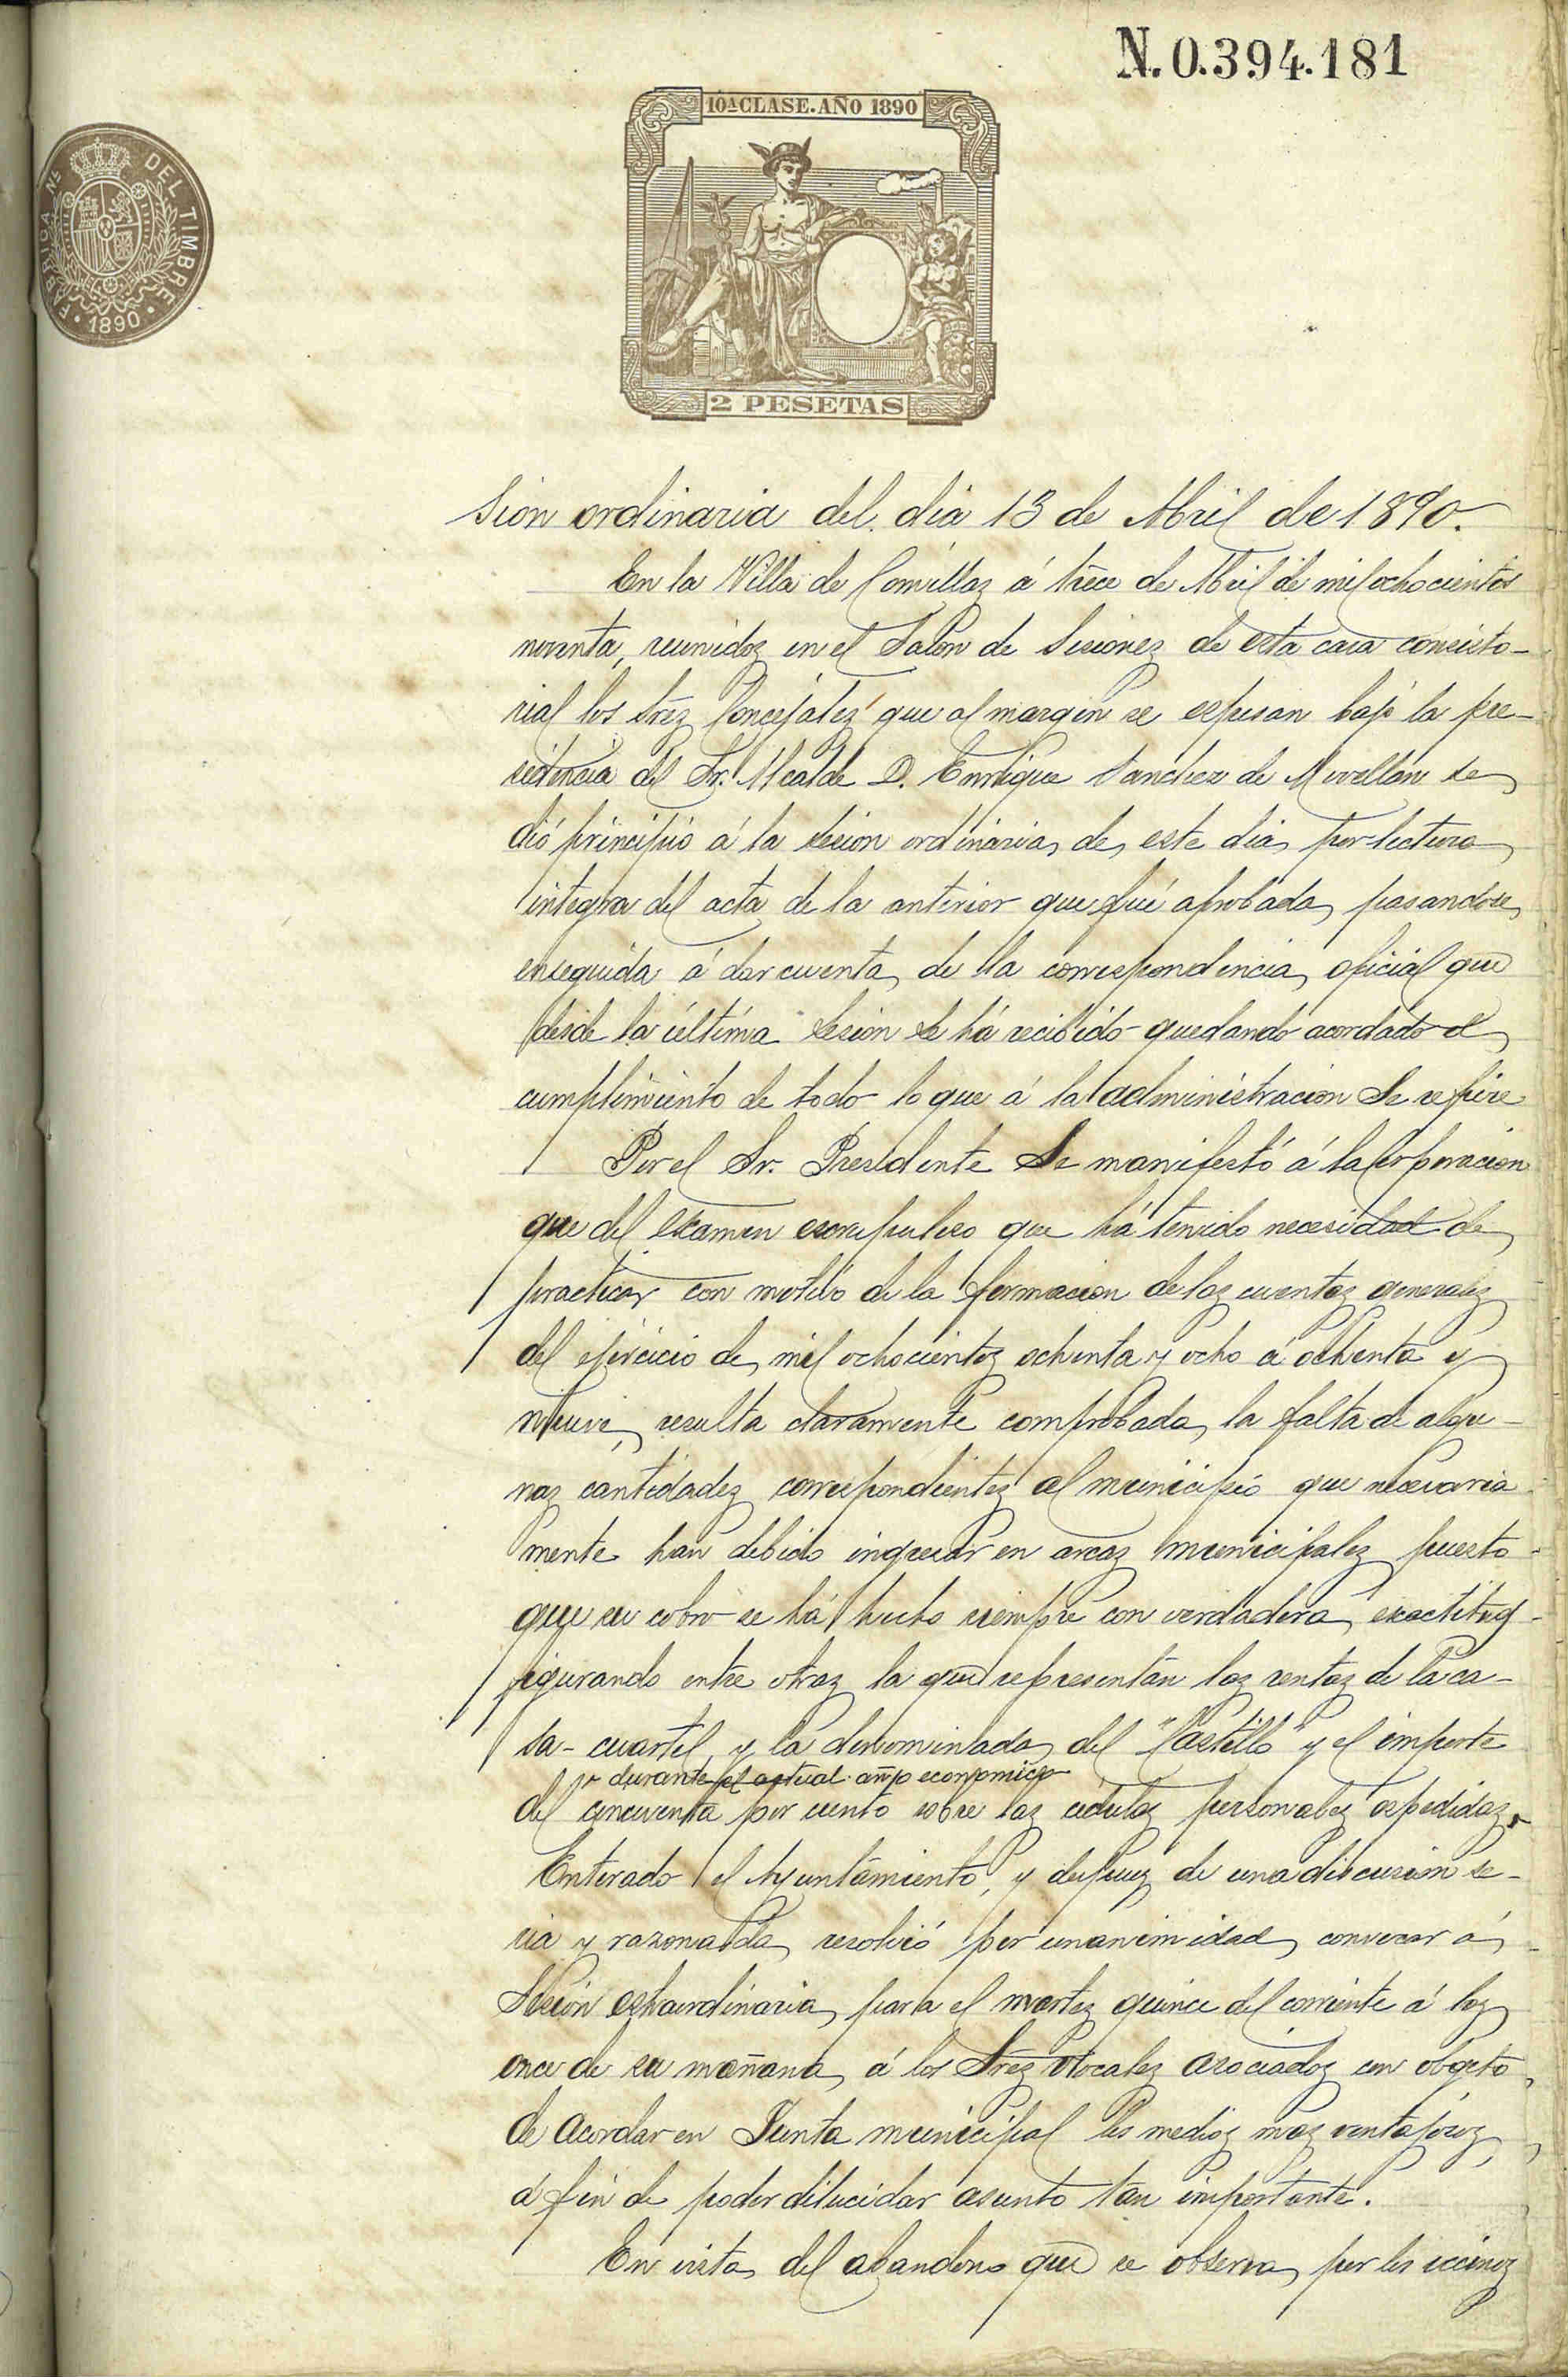 N. 0.394.181
10ª CLASE. AÑO 1890
FABRICA Nˡ DEL TIMBRE
· 1890 ·
2 PESETAS
Sion ordinaria del dia 13 de Abril de 1890.
En la Villa de Comillas á trece de Abril de mil ochocientos
noventa, reunidos en el Salon de Sesiones de esta casa consisto-
rial los Sres Concejales que al margen se espresan bajo la pre-
sidencia del Sr. Alcalde D. Enrique Sanchez de Movellan se
dió principio á la sesion ordinaria de este dia por lectura
integra del acta de la anterior que fué aprobada, pasandose
enseguida á dar cuenta de la correspondencia oficial que
desde la última sesion se há recibido quedando acordado el
cumplimiento de todo lo que á la administracion se refiere
Por el Sr. Presidente Se manifestó á la Corporacion
que del examen escrupuloso que há tenido necesidad de
practicar con motivo de la formacion de las cuentas generales
del ejercicio de mil ochocientos ochenta y ocho á ochenta y
nueve, resulta claramente comprobada la falta de algu-
nas cantidades correspondientes al municipio que necesaria-
mente han debido ingresar en arcas municipales puesto
que su cobro se há hecho siempre con verdadera exactitud
figurando entre otras la que representan las rentas de la ca-
sa-cuartel, y la denominada del "Castillo" y el importe
durante el actual año economico
del cincuenta por ciento sobre las cédulas personales espedidas
Enterado el Ayuntamiento, y despues de una discusion se-
ria y razonada, resolvió por unanimidad convocar á
Sesion estraordinaria para el martes quince del corriente á las
once de su mañana, á los Sres Vocales asociados con objeto
de acordar en Junta municipal los medios mas ventajosos,
á fin de poder dilucidar asunto tan importante.
En vista del abandono que se observa por los vecinos